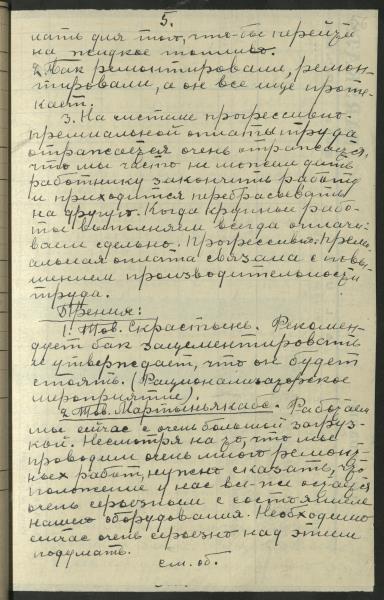 5.
нать для того, что-бы перейти
на жидкое топливо.
2. Бак ремонтировали, ремон-
тировали, а он все еще проте-
кает.
3. На системе прогрессивно-
премиальной оплаты труда
отражается очень отражается,
что мы часто не можем дать
работнику закончить работу
и приходится перебрасывать
на другую. Когда крупные рабо-
ты выполняем всегда оплачи-
ваем сдельно. Прогрессивн. преми-
альная оплата связана с повы-
шением производительности
труда.
Прения:
1. Тов. Скрастынь. Рекомен-
дует бак зацементировать
и утверждает, что он будет
стоять. (Рационализаторское
мероприятие).
2. Тов. Мартыньякабс. Работаем
мы сейчас с очень большой загруз-
кой. Несмотря на то, что мы
проводим очень много ремонт-
ных работ, нужно сказать, что
положение у нас все-же остается
очень серьезным с состоянием
нашего оборудования. Необходимо
сейчас очень серьезно над этим
подумать.
см. об.